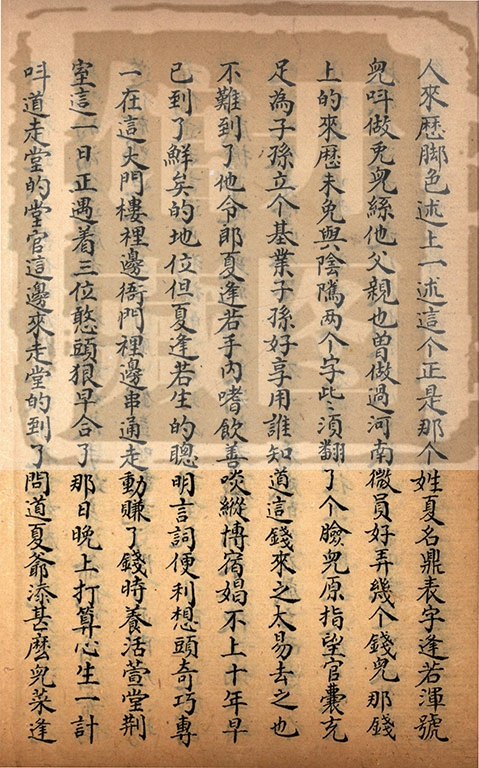 人來歷脚色述上一述這个正是那个姓夏名鼎表字逢若渾號
兒呌做兎兒絲他父親也曽做過河南微員好弄幾个錢兒那錢
上的來歷未免與陰隲两个字些須翻了个臉兒原指望官囊充
足為子孫立个基業子孫好享用誰知道這錢來之太易去之也
不難到了他令郎夏逢若手內嗜飲善啖縱博宿娼不上十年早
已到了鮮矣的地位但夏逢若生的聰明言詞便利想頭奇巧專
一在這大門樓裡邊衙門裡邊串通走動賺了錢時養活萱堂荆
室這一日正遇着三位憨頭狠早合了那日晚上打算心生一計
呌道走堂的堂官這邊來走堂的到了問道夏爺添甚麽兒菜逢